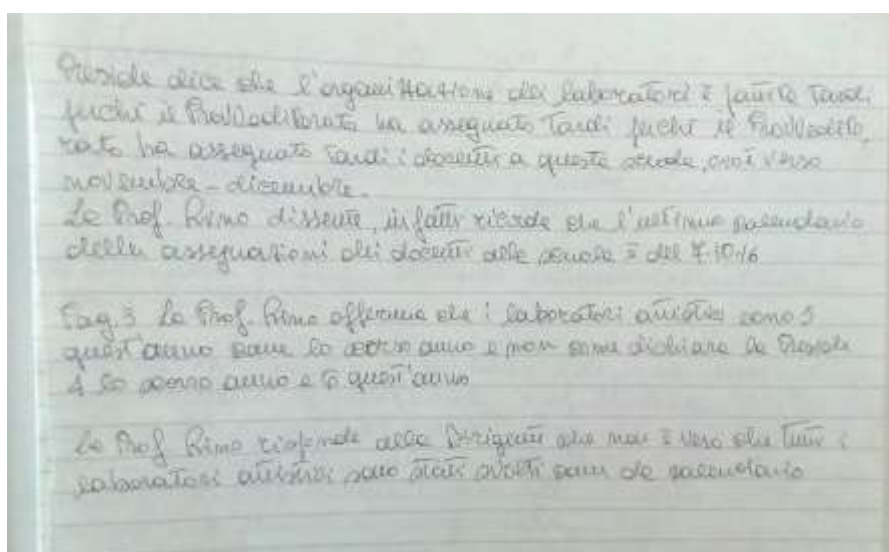 Preside dice che l'organizzazione dei laboratori è partita Tardi
perché il Provveditorato ha assegnato Tardi perché il Provvedito
rato ha assegnato Tardi i docenti a questa scuola, cioè verso
novembre - dicembre.
La Prof. Rimo dissente, infatti ricorda che l'ultimo calendario
delle assegnazioni dei docenti alle scuole è del 7.10.16
Pag. 3 La Prof. Rimo afferma che i laboratori artistici sono 5
quest'anno come lo scorso anno e non come dichiara la Preside
4 lo scorso anno e 6 quest'anno
La Prof Rimo risponde alla Dirigente che non è vero che Tutti i
laboratori artistici sono stati svolti come da calendario